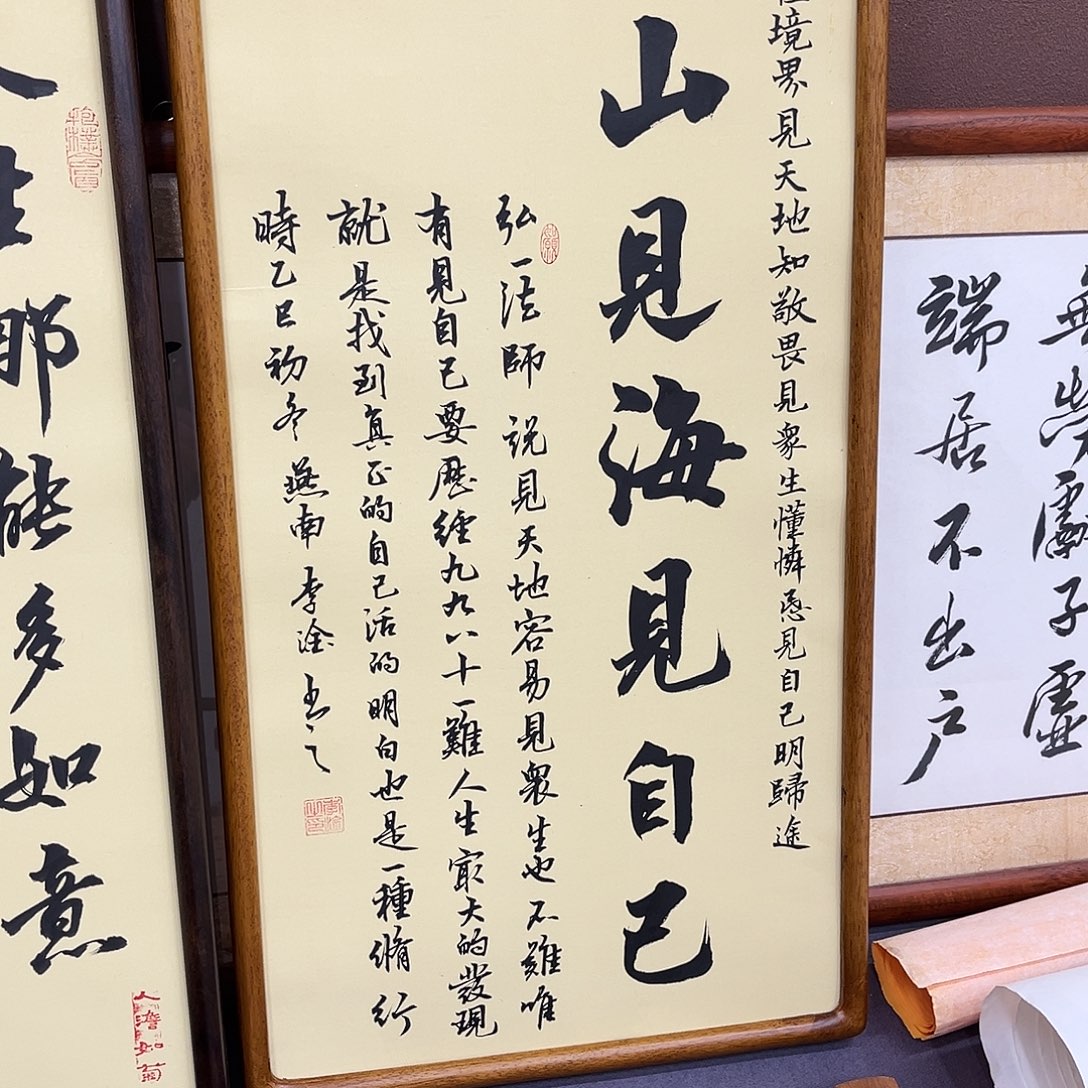 無勞獻子虛
端居不出戶
境界見天地知敬畏見衆生懂憐愍見自己明歸途
山見海見自己
弘一法師說見天地容易見衆生也不難唯
有見自己要歷經九九八十一難人生㝡大的發現
就是找到真正的自己活的明白也是一種脩行
時乙巳初冬燕南李淦書之
人生那能多如意
人澹如菊